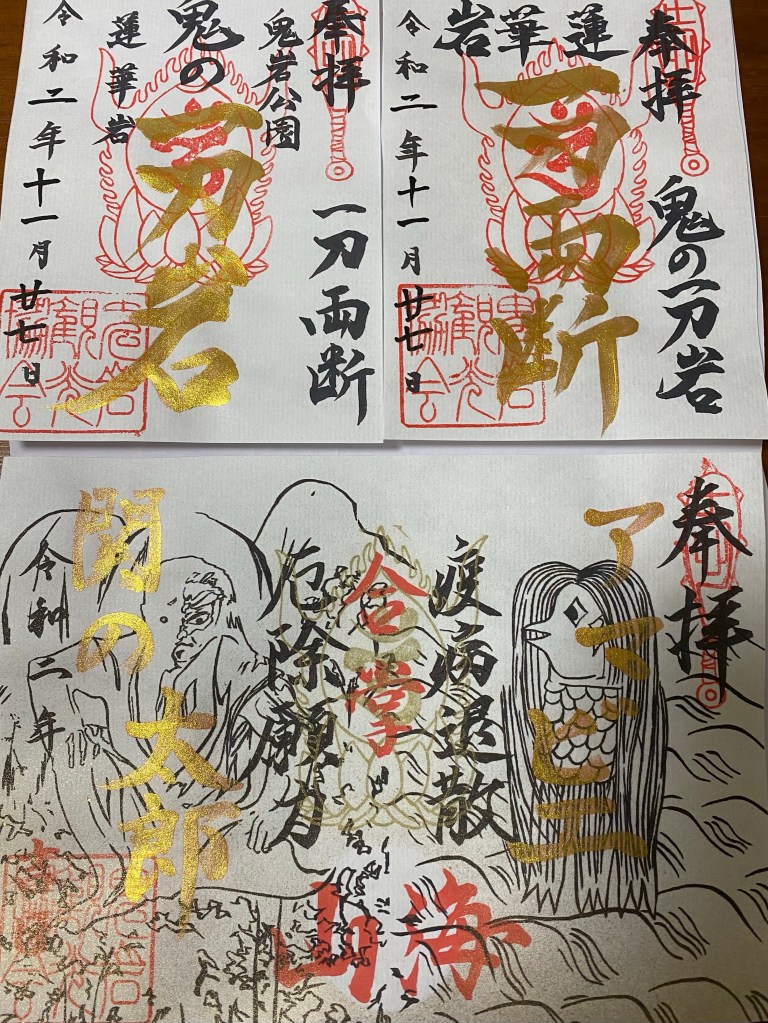 奉拝
鬼岩公園
一刀両断
鬼の一刀岩
蓮華岩
令和二年十一月廿七日
奉拝
鬼の一刀岩
蓮華岩
一刀両断
令和二年十一月廿七日
奉拝
アマビエ
疫病退散
合掌
厄除願力
関の太郎
令和二年
山海